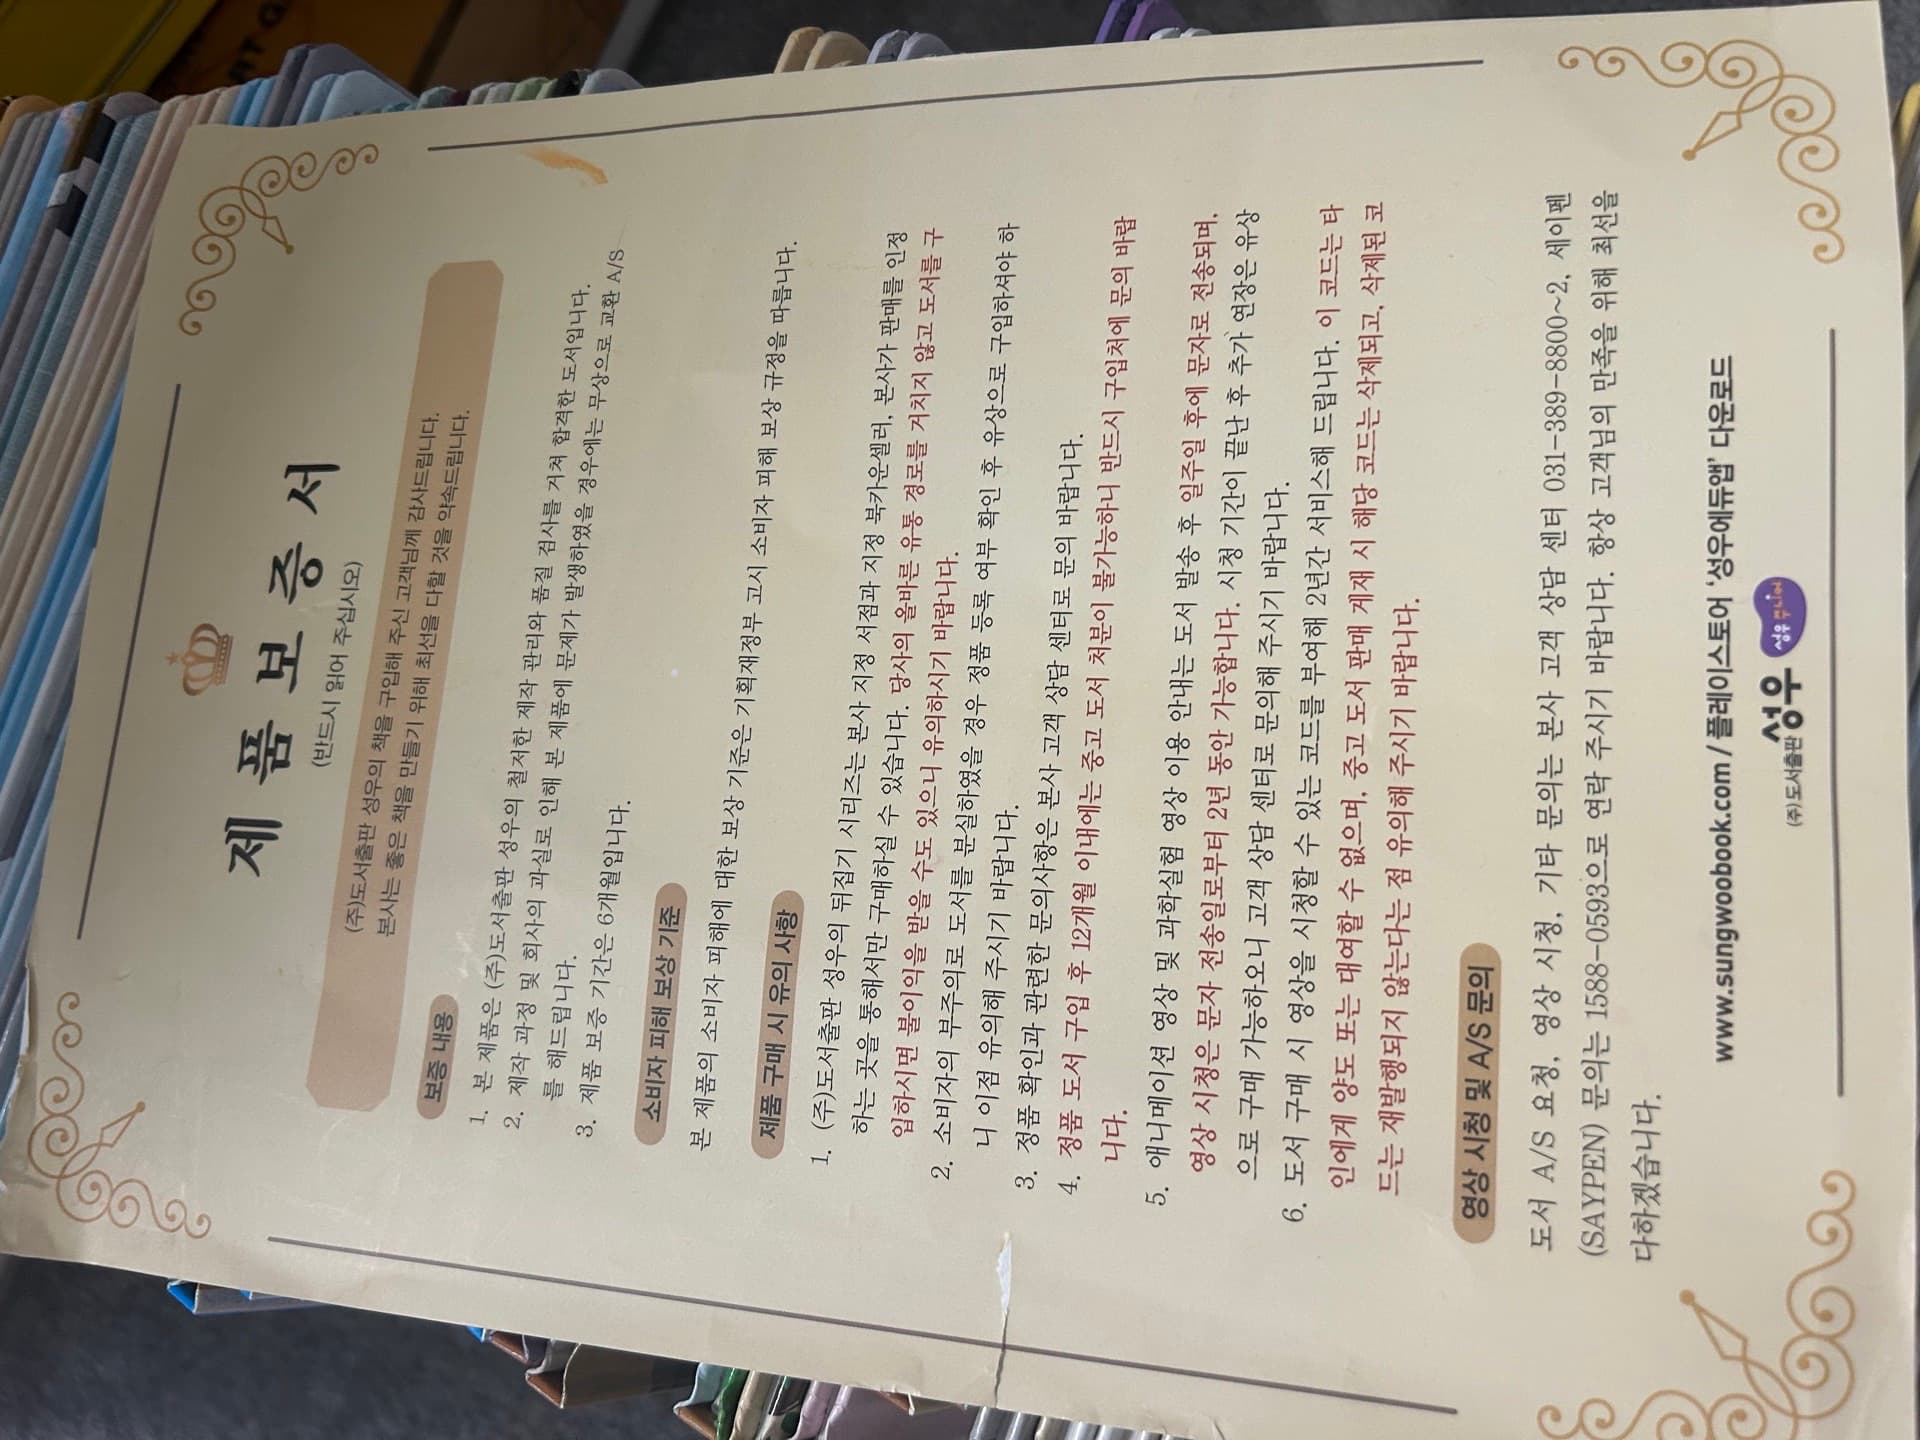 제품보증서
(반드시 읽어 주십시오)
(주)도서출판 성우의 책을 구입해 주신 고객님께 감사드립니다.
본사는 좋은 책을 만들기 위해 최선을 다할 것을 약속드립니다.
보증 내용
1. 본 제품은 (주)도서출판 성우의 철저한 제작 관리와 품질 검사를 거쳐 합격한 도서입니다.
2. 제작 과정 및 회사의 과실로 인해 본 제품에 문제가 발생하였을 경우에는 무상으로 교환 A/S
를 해드립니다.
3. 제품 보증 기간은 6개월입니다.
소비자 피해 보상 기준
본 제품의 소비자 피해에 대한 보상 기준은 기획재정부 고시 소비자 피해 보상 규정을 따릅니다.
제품 구매 시 유의 사항
1. (주)도서출판 성우의 뒤집기 시리즈는 본사 지정 서점과 지정 북카운셀러, 본사가 판매를 인정
하는 곳을 통해서만 구매하실 수 있습니다. 당사의 올바른 유통 경로를 거치지 않고 도서를 구
입하시면 불이익을 받을 수도 있으니 유의하시기 바랍니다.
2. 소비자의 부주의로 도서를 분실하였을 경우 정품 등록 여부 확인 후 유상으로 구입하셔야 하
니 이점 유의해 주시기 바랍니다.
3. 정품 확인과 관련한 문의사항은 본사 고객 상담 센터로 문의 바랍니다.
4. 정품 도서 구입 후 12개월 이내에는 중고 도서 처분이 불가능하니 반드시 구입처에 문의 바랍
니다.
5. 애니메이션 영상 및 과학실험 영상 이용 안내는 도서 발송 후 일주일 후에 문자로 전송되며,
영상 시청은 문자 전송일로부터 2년 동안 가능합니다. 시청 기간이 끝난 후 추가 연장은 유상
으로 구매 가능하오니 고객 상담 센터로 문의해 주시기 바랍니다.
6. 도서 구매 시 영상을 시청할 수 있는 코드를 부여해 2년간 서비스해 드립니다. 이 코드는 타
인에게 양도 또는 대여할 수 없으며, 중고 도서 판매 게재 시 해당 코드는 삭제되고, 삭제된 코
드는 재발행되지 않는다는 점 유의해 주시기 바랍니다.
영상 시청 및 A/S 문의
도서 A/S 요청, 영상 시청, 기타 문의는 본사 고객 상담 센터 031-389-8800~2, 세이펜
(SAYPEN) 문의는 1588-0593으로 연락 주시기 바랍니다. 항상 고객님의 만족을 위해 최선을
다하겠습니다.
www.sungwoobook.com / 플레이스토어 '성우에듀앱' 다운로드
(주)도서출판 성우 성우 주니어